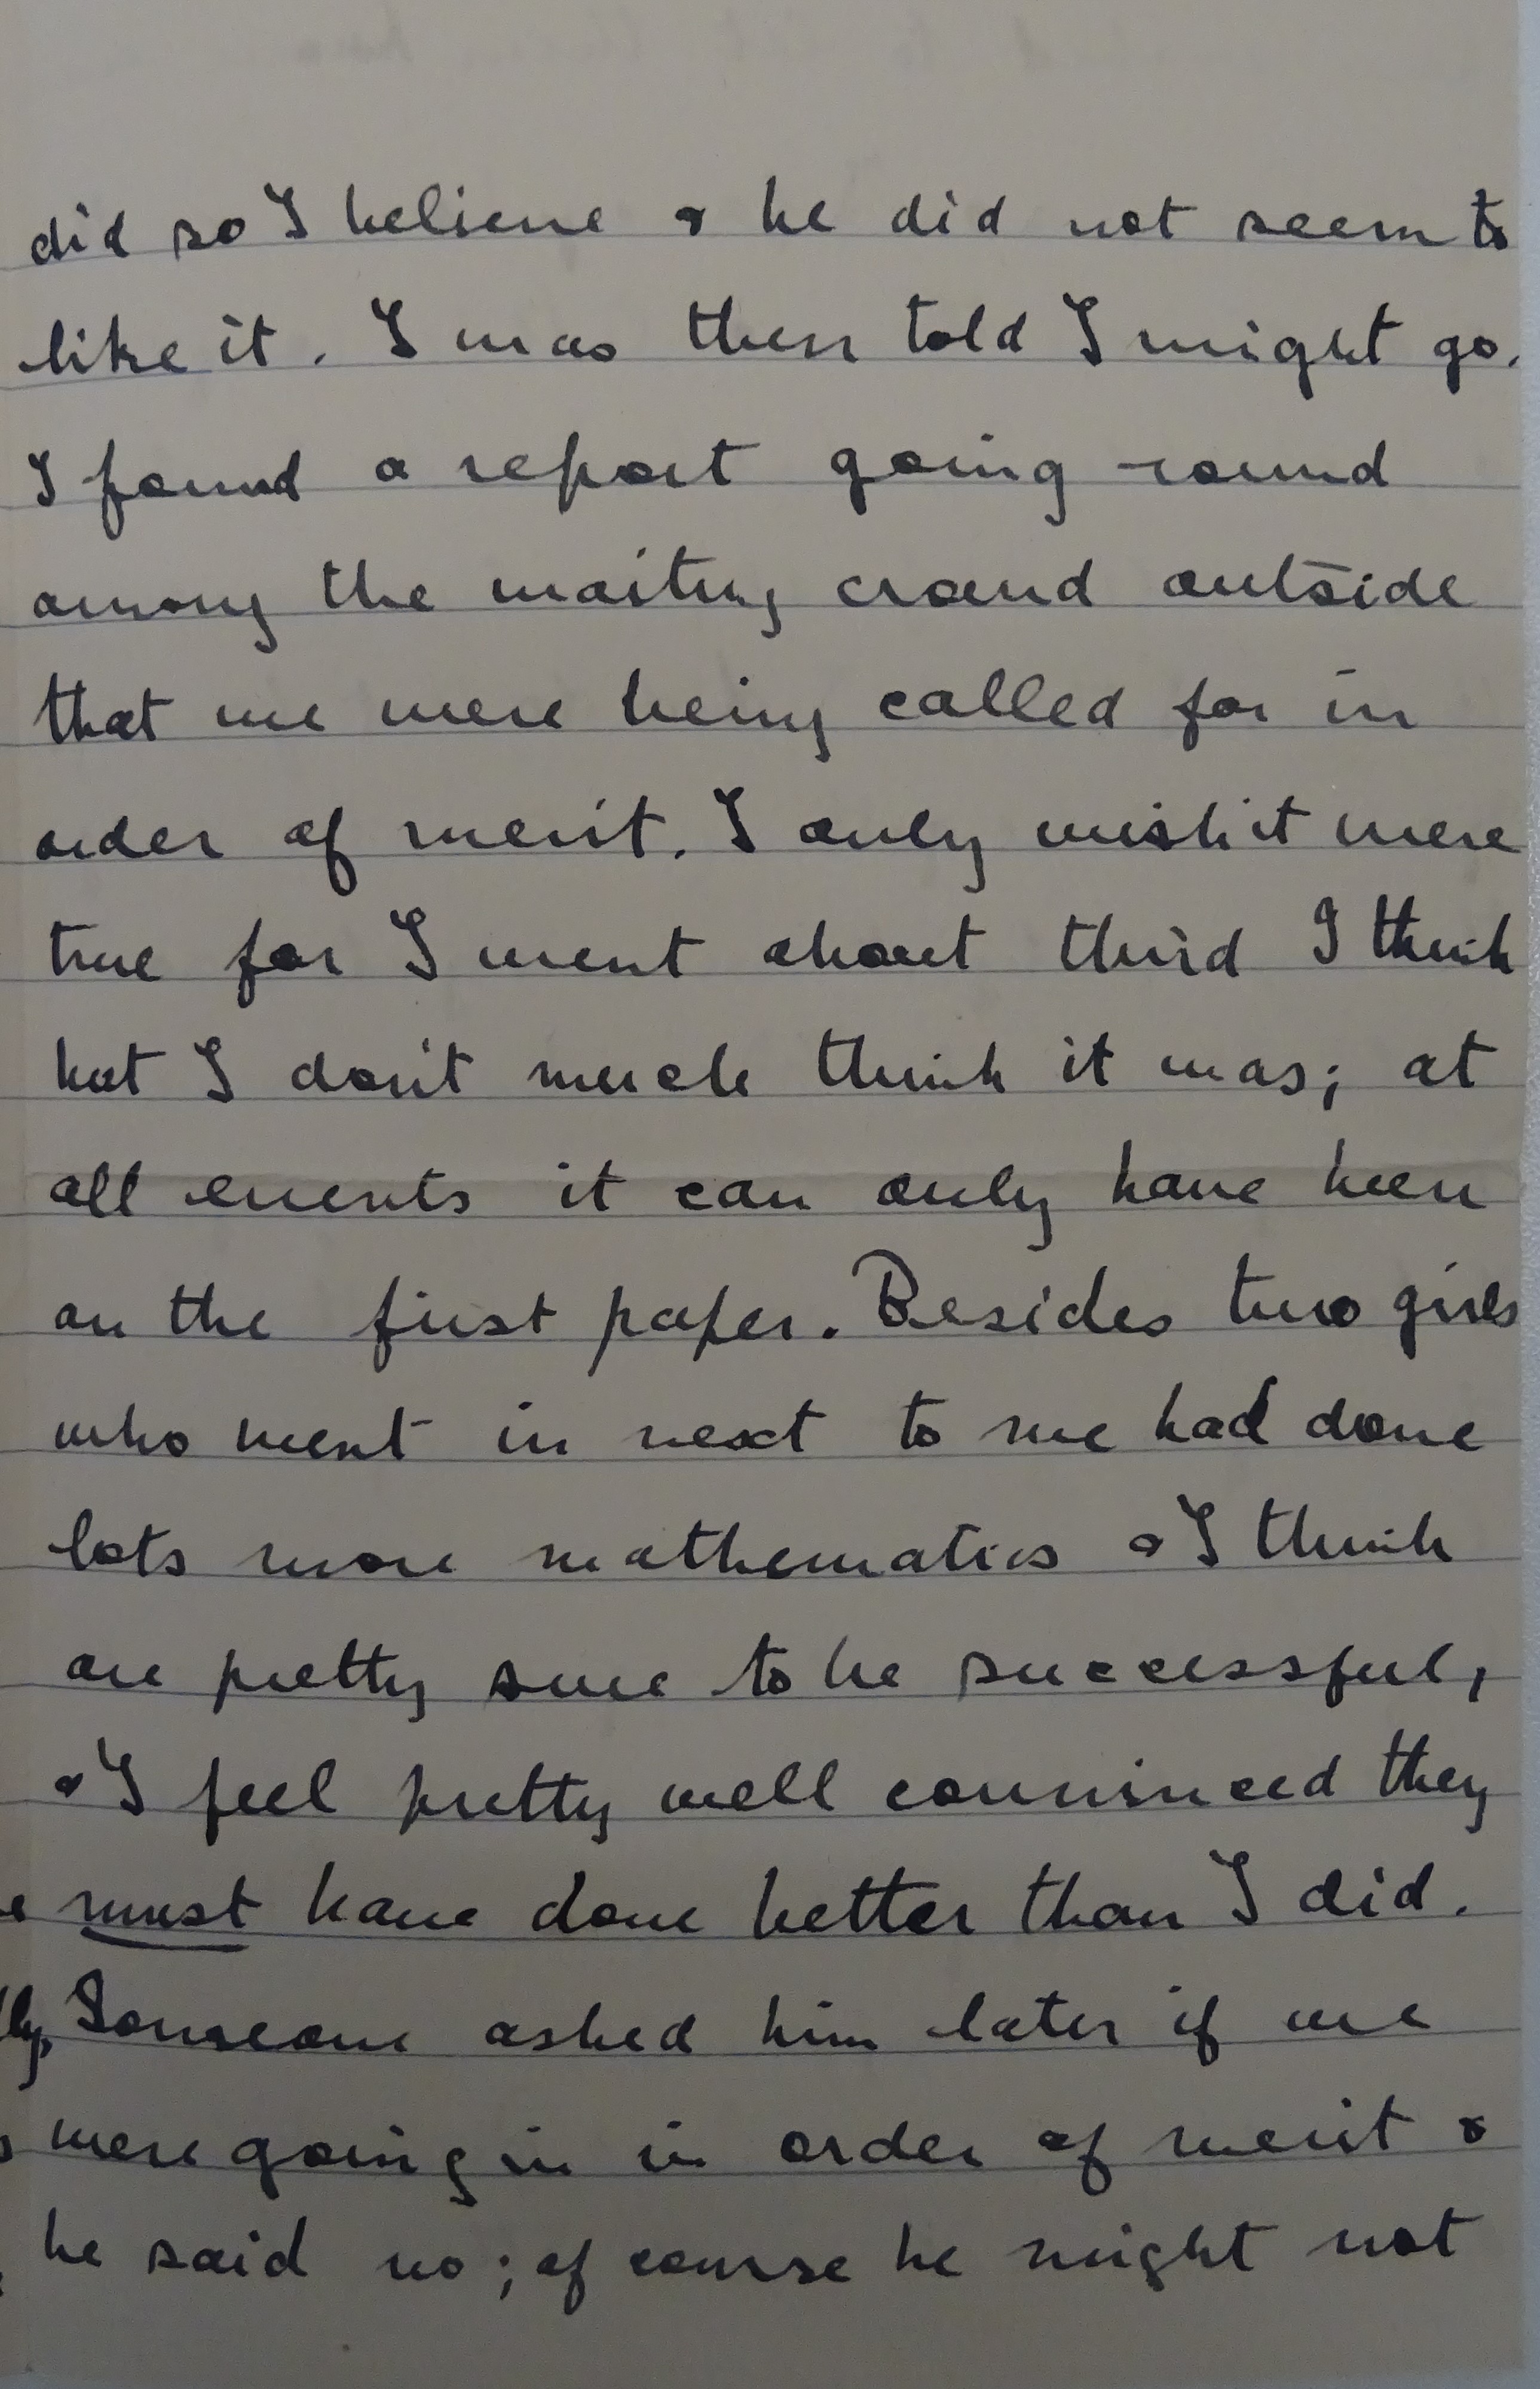 did so I believe & he did not seem to
like it. I was then told I might go.
I found a report going round
among the waiting crowd outside
that we were being called for in
order of merit. I only wish it were
true for I went about third I think
but I don't much think it was; at
all events it can only have been
on the first paper. Besides two girls
who went in next to me had done
lots more mathematics & I think
are pretty sure to be successful,
& I feel pretty well convinced they
must have done better than I did.
Someone asked him later if we
were going in in order of merit &
he said no; of course he might not